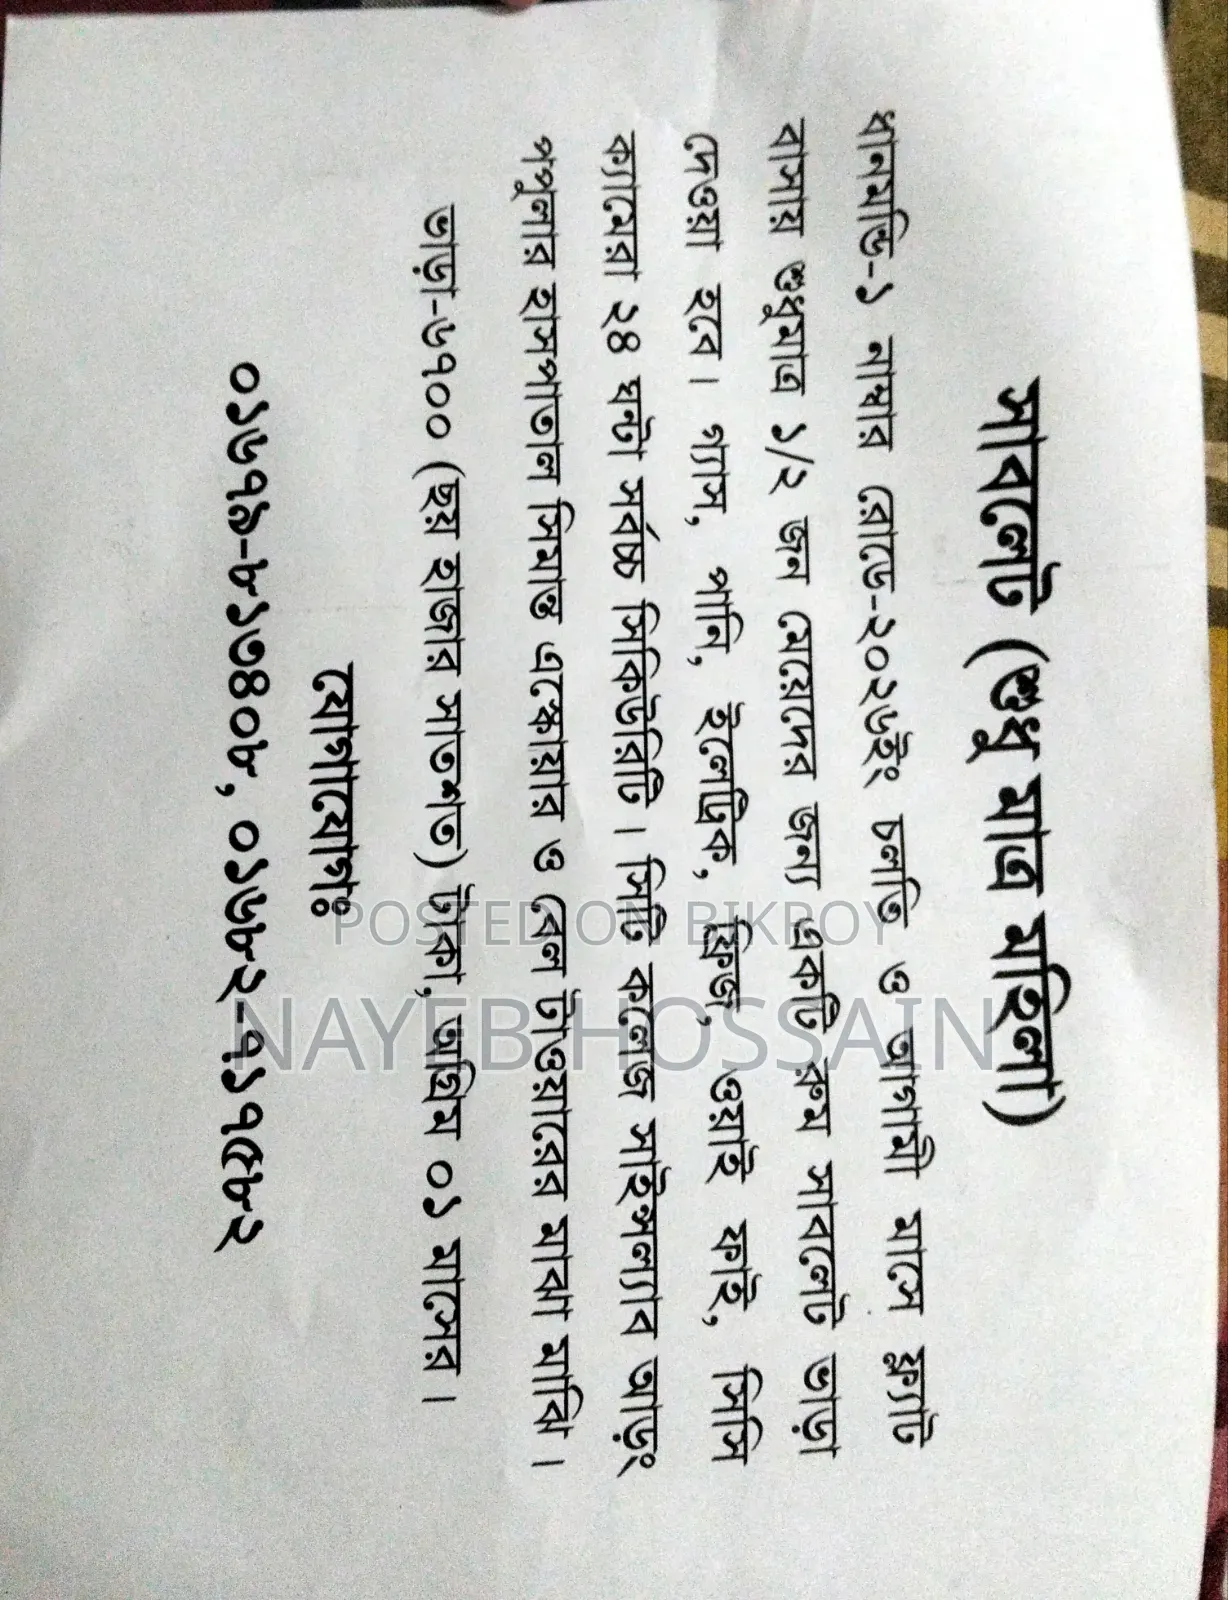 সাবলেট (শুধু মাত্র মহিলা)
ধানমন্ডি-১ নাম্বার রোডে-২০২৬ইং চলতি ও আগামী মাসে ফ্ল্যাট
বাসায় শুধুমাত্র ১/২ জন মেয়েদের জন্য একটি রুম সাবলেট ভাড়া
দেওয়া হবে। গ্যাস, পানি, ইলেট্রিক, ফ্রিজ, ওয়াই ফাই, সিসি
ক্যামেরা ২৪ ঘন্টা সর্বচ্চ সিকিউরিটি। সিটি কলেজ সাইন্সল্যাব আড়ং
পপুলার হাসপাতাল সিমান্ত এস্কোয়ার ও বেল টাওয়ারের মাঝা মাঝি।
ভাড়া-৬৭০০ (ছয় হাজার সাতশত) টাকা, অগ্রিম ০১ মাসের।
যোগাযোগঃ
০১৬৭৯-৮১৩৪০৮, ০১৬৮২-৭১৭৫৮২
POSTED ON BIKROY
NAYEB HOSSAIN